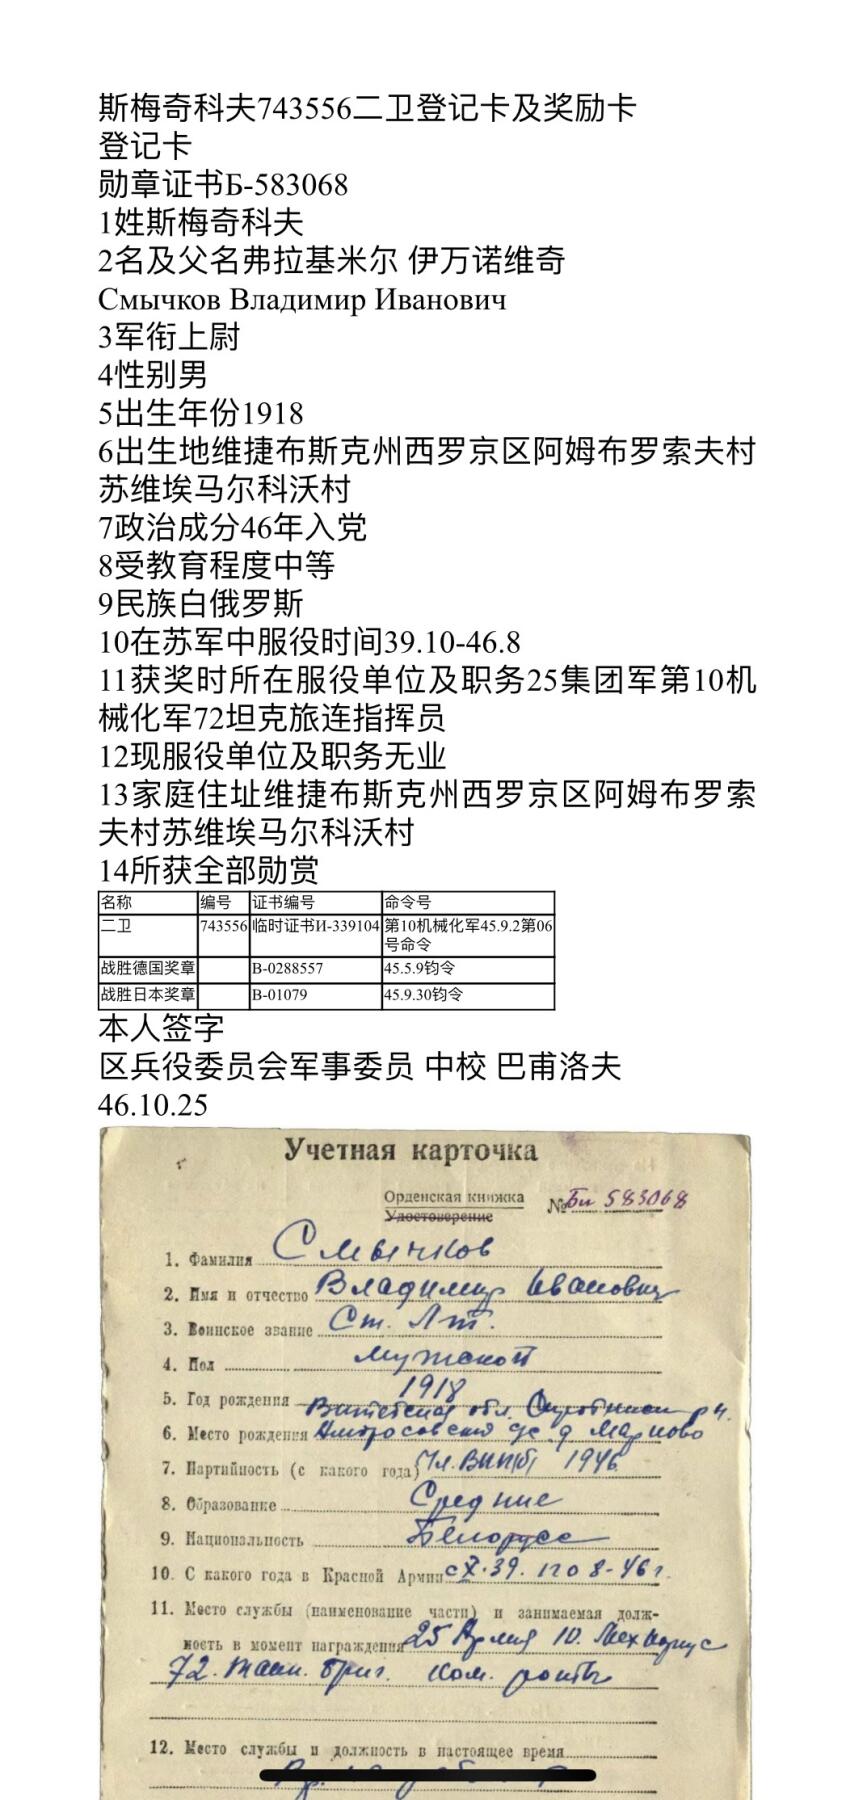 斯梅奇科夫743556二卫登记卡及奖励卡
登记卡
勋章证书Б-583068
1姓斯梅奇科夫
2名及父名弗拉基米尔 伊万诺维奇
Смычков Владимир Иванович
3军衔上尉
4性别男
5出生年份1918
6出生地维捷布斯克州西罗京区阿姆布罗索夫村
苏维埃马尔科沃村
7政治成分46年入党
8受教育程度中等
9民族白俄罗斯
10在苏军中服役时间39.10-46.8
11获奖时所在服役单位及职务25集团军第10机
械化军72坦克旅连指挥员
12现服役单位及职务无业
13家庭住址维捷布斯克州西罗京区阿姆布罗索
夫村苏维埃马尔科沃村
14所获全部勋赏
名称 编号 证书编号 命令号
二卫 743556 临时证书И-339104 第10机械化军45.9.2第06
号命令
战胜德国奖章 В-0288557 45.5.9钧令
战胜日本奖章 В-01079 45.9.30钧令
本人签字
区兵役委员会军事委员 中校 巴甫洛夫
46.10.25
Учетная карточка
Орденская книжка
Удостоверение
№ 583068
1. Фамилия Смычков
2. Имя и отчество Владимир Иванович
3. Воинское звание Ст. Лт.
4. Пол мужской
5. Год рождения 1918
Витебская обл. р-н.
6. Место рождения Амбросовский с/с д. Марково
7. Партийность (с какого года) Чл. ВКП(б) 1946
8. Образование Средние
9. Национальность Белорусс
10. С какого года в Красной Армии с X.39. по 8-46г.
11. Место службы (наименование части) и занимаемая долж-
ность в момент награждения 25 Армия 10. Мехкорпус
72. танк. бриг. ком. роты
12. Место службы и должность в настоящее время